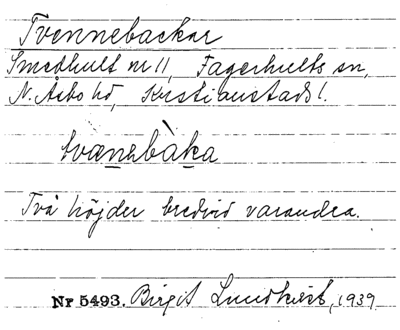 Tvennebackar
Smedhult nr 11, Fagerhults sn,
N. Åsbo hd, Kristianstads l.
tvænebàka
Två höjder bredvid varandra.
Nr 5493. Birgit Lundkvist, 1939